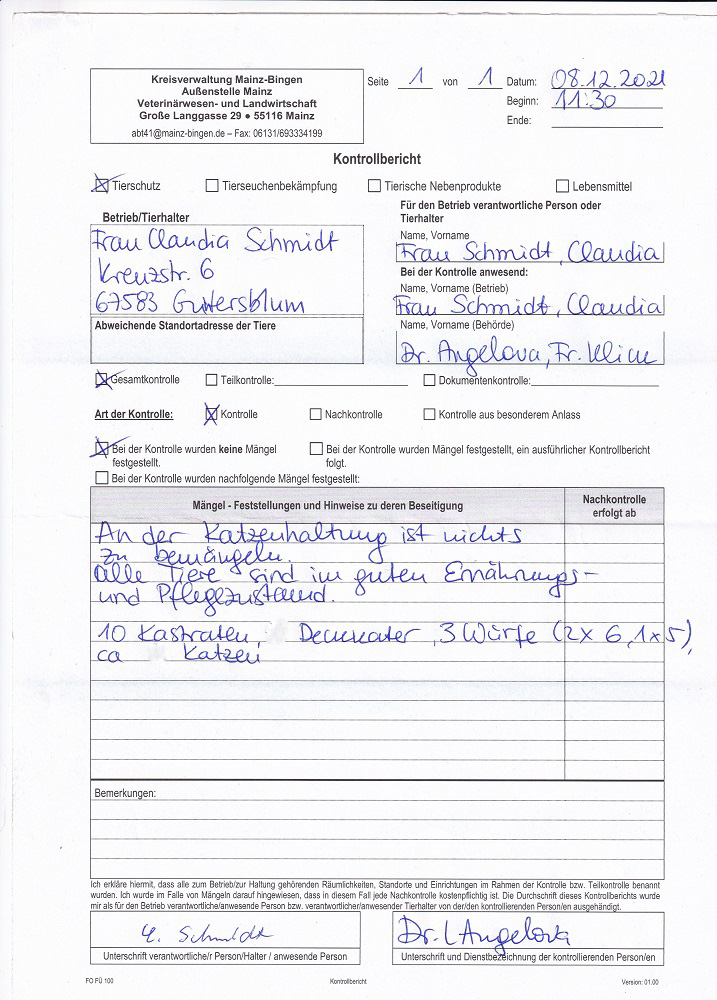 Kreisverwaltung Mainz-Bingen
Außenstelle Mainz
Veterinärwesen- und Landwirtschaft
Große Langgasse 29 ● 55116 Mainz
abt41@mainz-bingen.de – Fax: 06131/693334199
Seite 1 von 1 Datum: 08.12.2021
Beginn: 11:30
Ende:
Kontrollbericht
Tierschutz Tierseuchenbekämpfung Tierische Nebenprodukte Lebensmittel
Betrieb/Tierhalter
Frau Claudia Schmidt
Kreuzstr. 6
67583 Guntersblum
Abweichende Standortadresse der Tiere
Für den Betrieb verantwortliche Person oder
Tierhalter
Name, Vorname
Frau Schmidt, Claudia
Bei der Kontrolle anwesend:
Name, Vorname (Betrieb)
Frau Schmidt, Claudia
Name, Vorname (Behörde)
Dr. Angelova, Fr.
Gesamtkontrolle Teilkontrolle: Dokumentenkontrolle:
Art der Kontrolle: Kontrolle Nachkontrolle Kontrolle aus besonderem Anlass
Bei der Kontrolle wurden keine Mängel
festgestellt.
Bei der Kontrolle wurden Mängel festgestellt, ein ausführlicher Kontrollbericht
folgt.
Bei der Kontrolle wurden nachfolgende Mängel festgestellt:
Mängel - Feststellungen und Hinweise zu deren Beseitigung
Nachkontrolle
erfolgt ab
An der Katzenhaltung ist nichts
zu bemängeln.
Alle Tiere sind im guten Ernährungs-
und Pflegezustand.
10 Kastraten, Deckkater, 3 Würfe (2x 6, 1x5),
ca Katzen
Bemerkungen:
Ich erkläre hiermit, dass alle zum Betrieb/zur Haltung gehörenden Räumlichkeiten, Standorte und Einrichtungen im Rahmen der Kontrolle bzw. Teilkontrolle benannt
wurden. Ich wurde im Falle von Mängeln darauf hingewiesen, dass in diesem Fall jede Nachkontrolle kostenpflichtig ist. Die Durchschrift dieses Kontrollberichts wurde
mir als für den Betrieb verantwortliche/anwesende Person bzw. verantwortlicher/anwesender Tierhalter von der/den kontrollierenden Person/en ausgehändigt.
Schmidt
Unterschrift verantwortliche/r Person/Halter / anwesende Person
Dr. L Angelova
Unterschrift und Dienstbezeichnung der kontrollierenden Person/en
FO FÜ 100 Kontrollbericht Version: 01.00